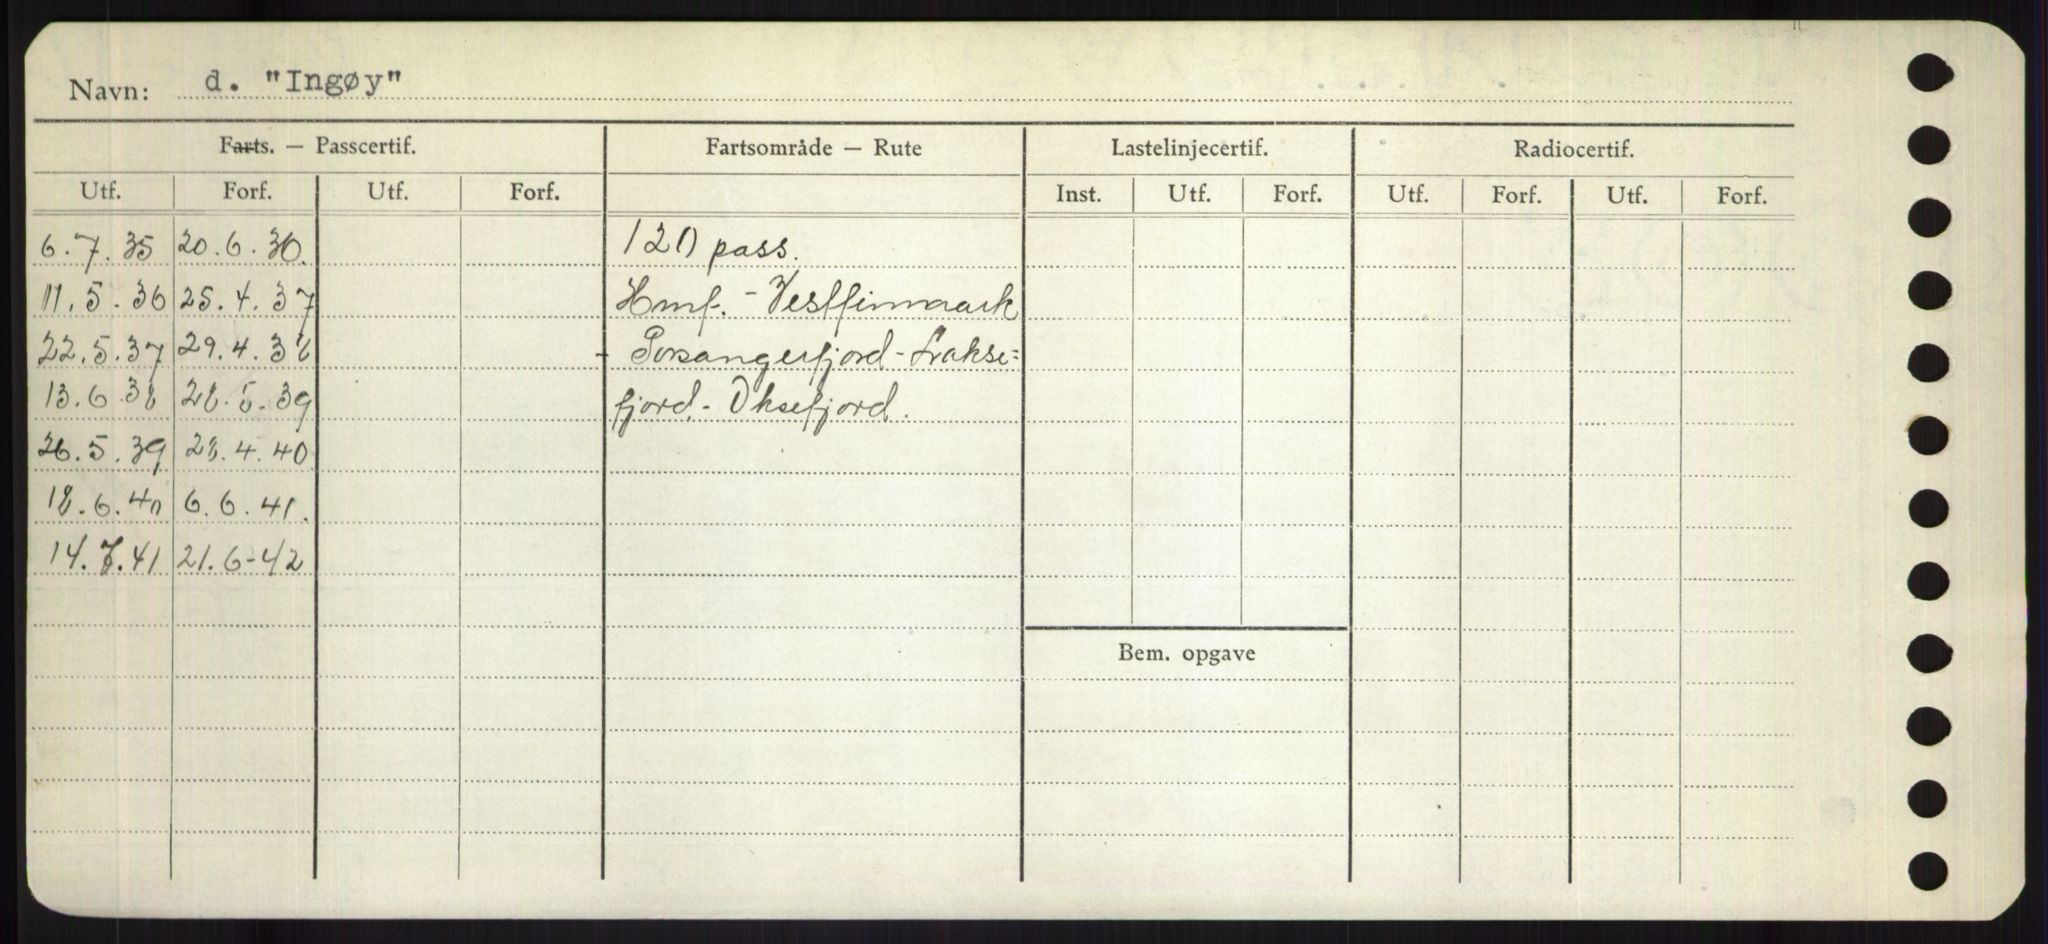 Navn: d. "Ingøy"
Farts. — Passcertif. Fartsområde — Rute Lastelinjecertif. Radiocertif.
Utf. Forf. Utf. Forf. Inst. Utf. Forf. Utf. Forf. Utf. Forf.
6.7.35 20.6.36. 120 pass.
11.5.36 25.4.37 Hmf. - Vestfinmaark
22.5.37 29.4.38 - Porsangerfjord - Lakse=
13.6.38 28.5.39 fjord. - Oksefjord.
26.5.39 28.4.40
18.6.40 6.6.41.
14.7.41 21.6-42
Bem. opgave